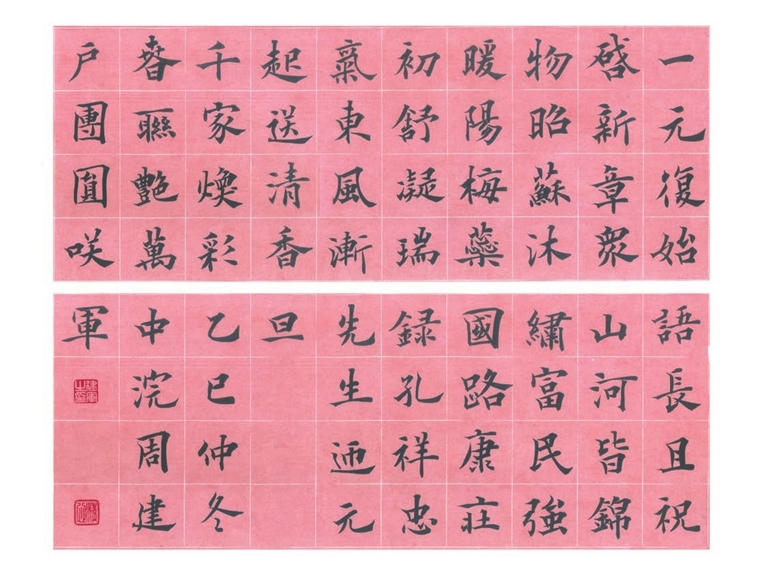 一元復始
啓新章眾
物昭蘇沐
暖陽梅蘂
初舒凝瑞
氣東風漸
起送清香
千家煥彩
春聯艷萬
户團圓咲
語長且祝
山河皆錦
繡富民強
國路康莊
録孔祥忠
先生迎元
旦
乙巳仲冬
中浣周建
軍